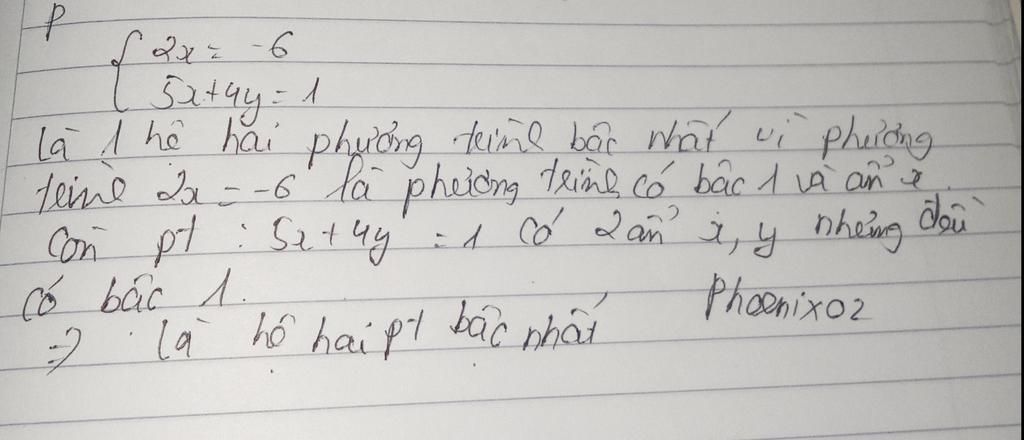 p
{ 2x = -6
5x+4y = 1
là 1 hệ hai phương trình bậc nhất vì phương
trình 2x = -6 là phương trình có bậc 1 và ẩn x.
Còn pt : 5x + 4y = 1 có 2 ẩn x, y nhưng đều
có bậc 1.
Phoenix02
=> là hệ hai pt bậc nhất